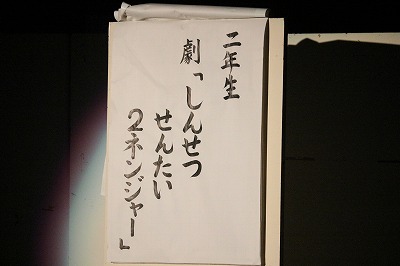 二年生
劇「しんせつ
せんたい
2ネンジャー」